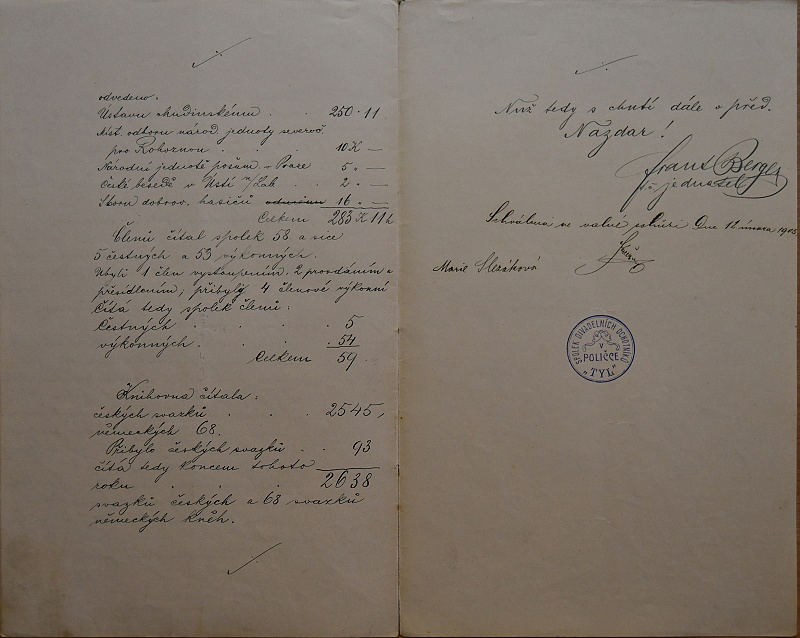 odvedeno.
Ústavu chudinskému . . 250·11
Míst. odboru národ. jednoty severoč.
pro Rohoznou . . . 10 K —
Národní jednotě pošum. v Praze 5 „ —
České besedě v Ústí n/Lab. . . 2 „ —
Sboru dobrov. hasičů 16 „ —
Celkem 283 K 11 h
Členů čítal spolek 58 a sice
5 čestných a 53 výkonných.
Ubyli 1 člen vystoupením, 2 provdáním a
přesídlením, přibyly 4 členové výkonní
Čítá tedy spolek členů:
Čestných . . . . 5
výkonných . . . . 54
Celkem 59
Knihovna čítala:
českých svazků . . . 2545,
německých 68.
Přibylo českých svazků . . 93
čítá tedy koncem tohoto
roku . . . 2638
svazků českých a 68 svazků
německých kněh.
Nuž tedy s chutí dále v před.
Nazdar!
Frant Berger
jednatel
Schválena ve valné schůzi Dne 12 února 1905
Marie Slezáková
SPOLEK DIVADELNÍCH OCHOTNÍKŮ
V
POLIČCE
„TYL"